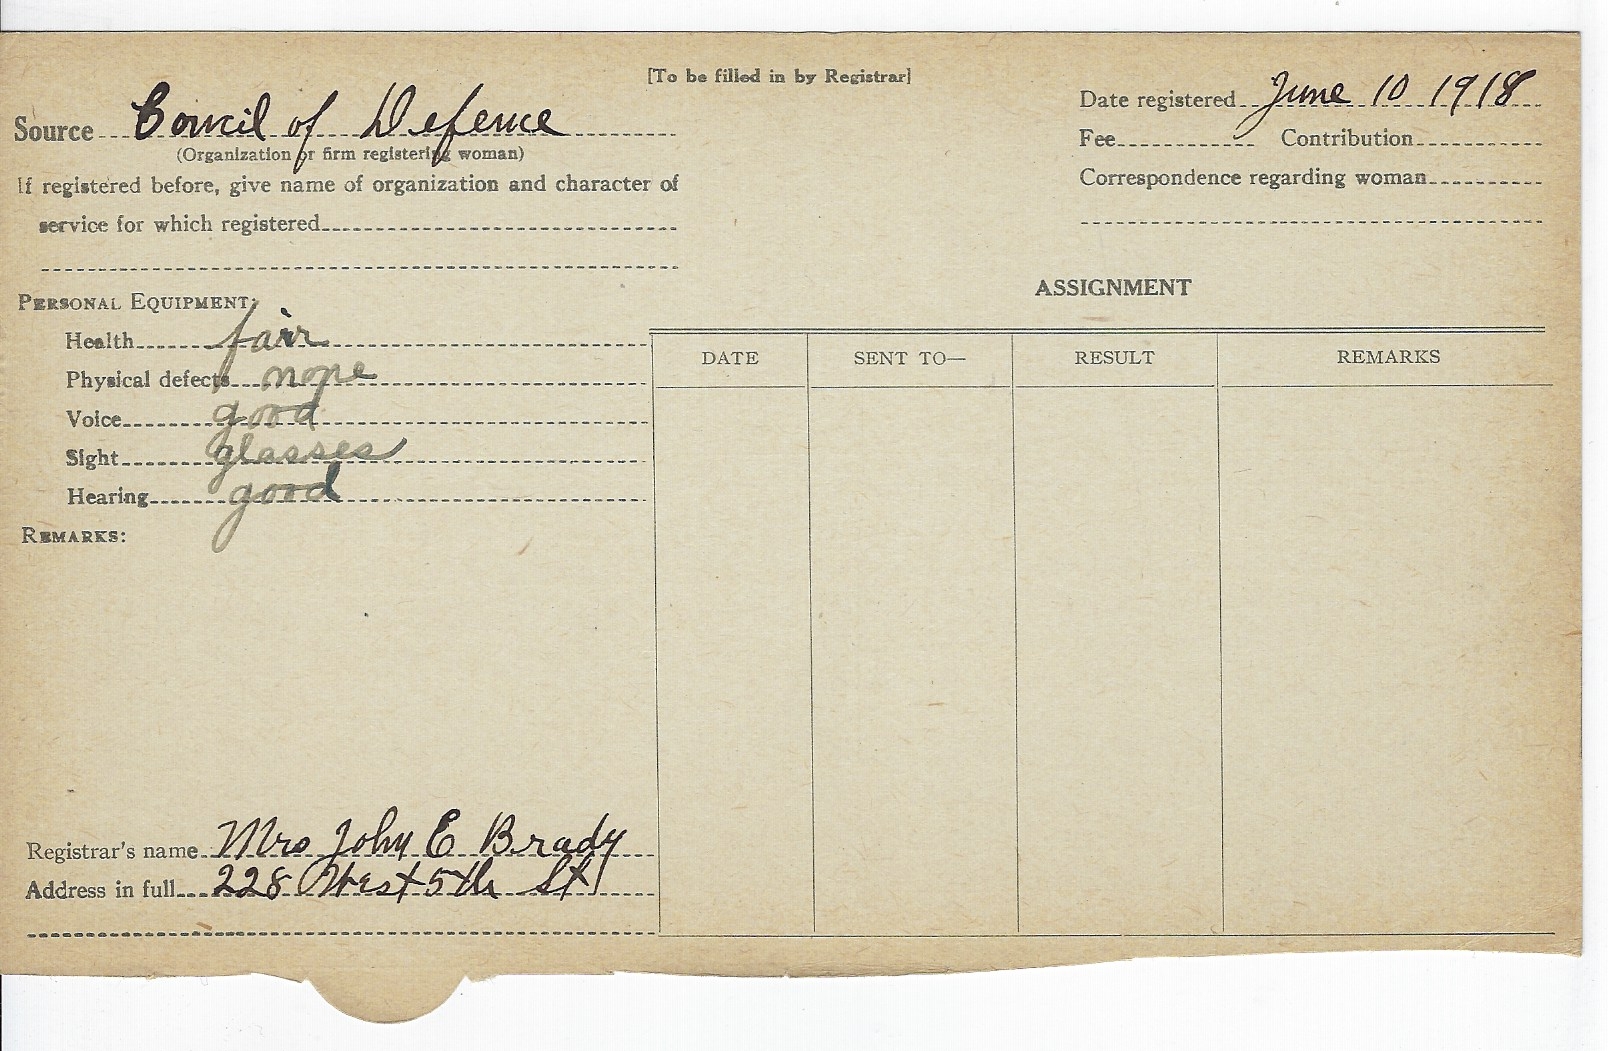 [To be filled in by Registrar]
Source Council of Defence
(Organization or firm registering woman)
If registered before, give name of organization and character of
service for which registered
Date registered June 10 1918
Fee Contribution
Correspondence regarding woman
PERSONAL EQUIPMENT:
Health fair
Physical defects none
Voice good
Sight glasses
Hearing good
REMARKS:
ASSIGNMENT
DATE SENT TO— RESULT REMARKS
Registrar's name Mrs John E Brady
Address in full 228 West 5th St